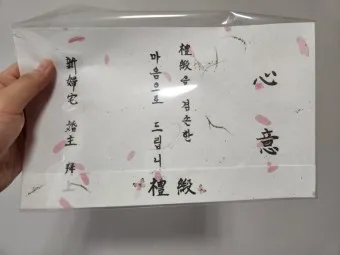 心意
禮緞을 겸손한
마음으로 드립니
新婦宅 婚主 拜
禮緞